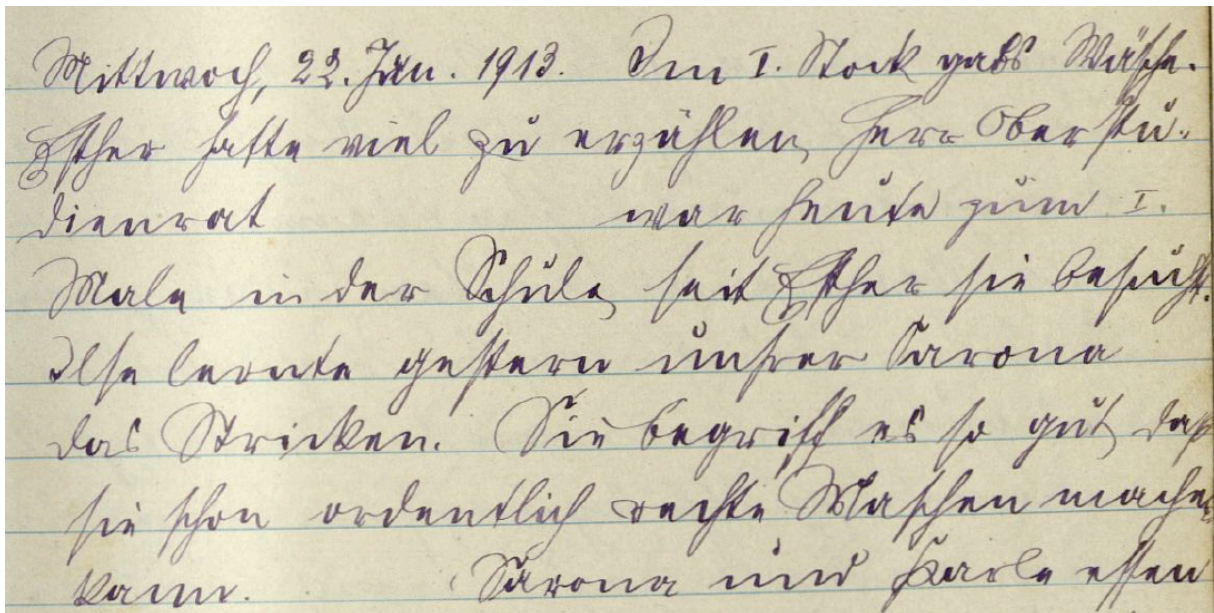 Mittwoch, 22. Jan. 1913. Im I. Stock gabs Wäsche.
Esther hatte viel zu erzählen, Herr Oberstu-
dienrat war heute zum I.
Male in der Schule, seit Esther sie besucht.
Ilse lernte gestern unsrer Sarona
das Stricken. Sie begriff es so gut, daß
sie schon ordentlich rechte Maschen machen
kann. Sarona und Karle essen